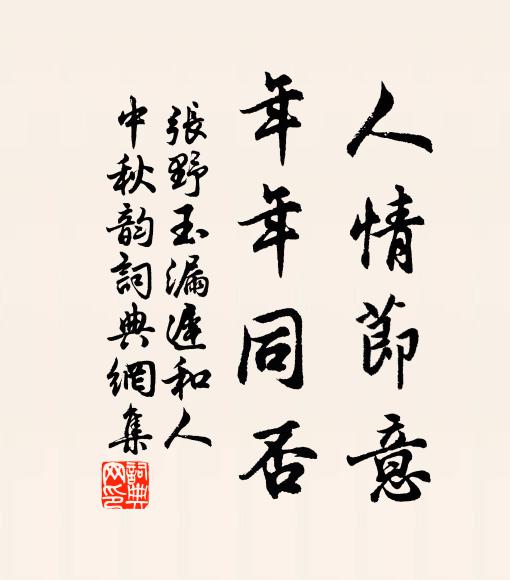 人情節意
年年同否
張野玉漏遲和人
中秋韵詞典網集
詞典
网印